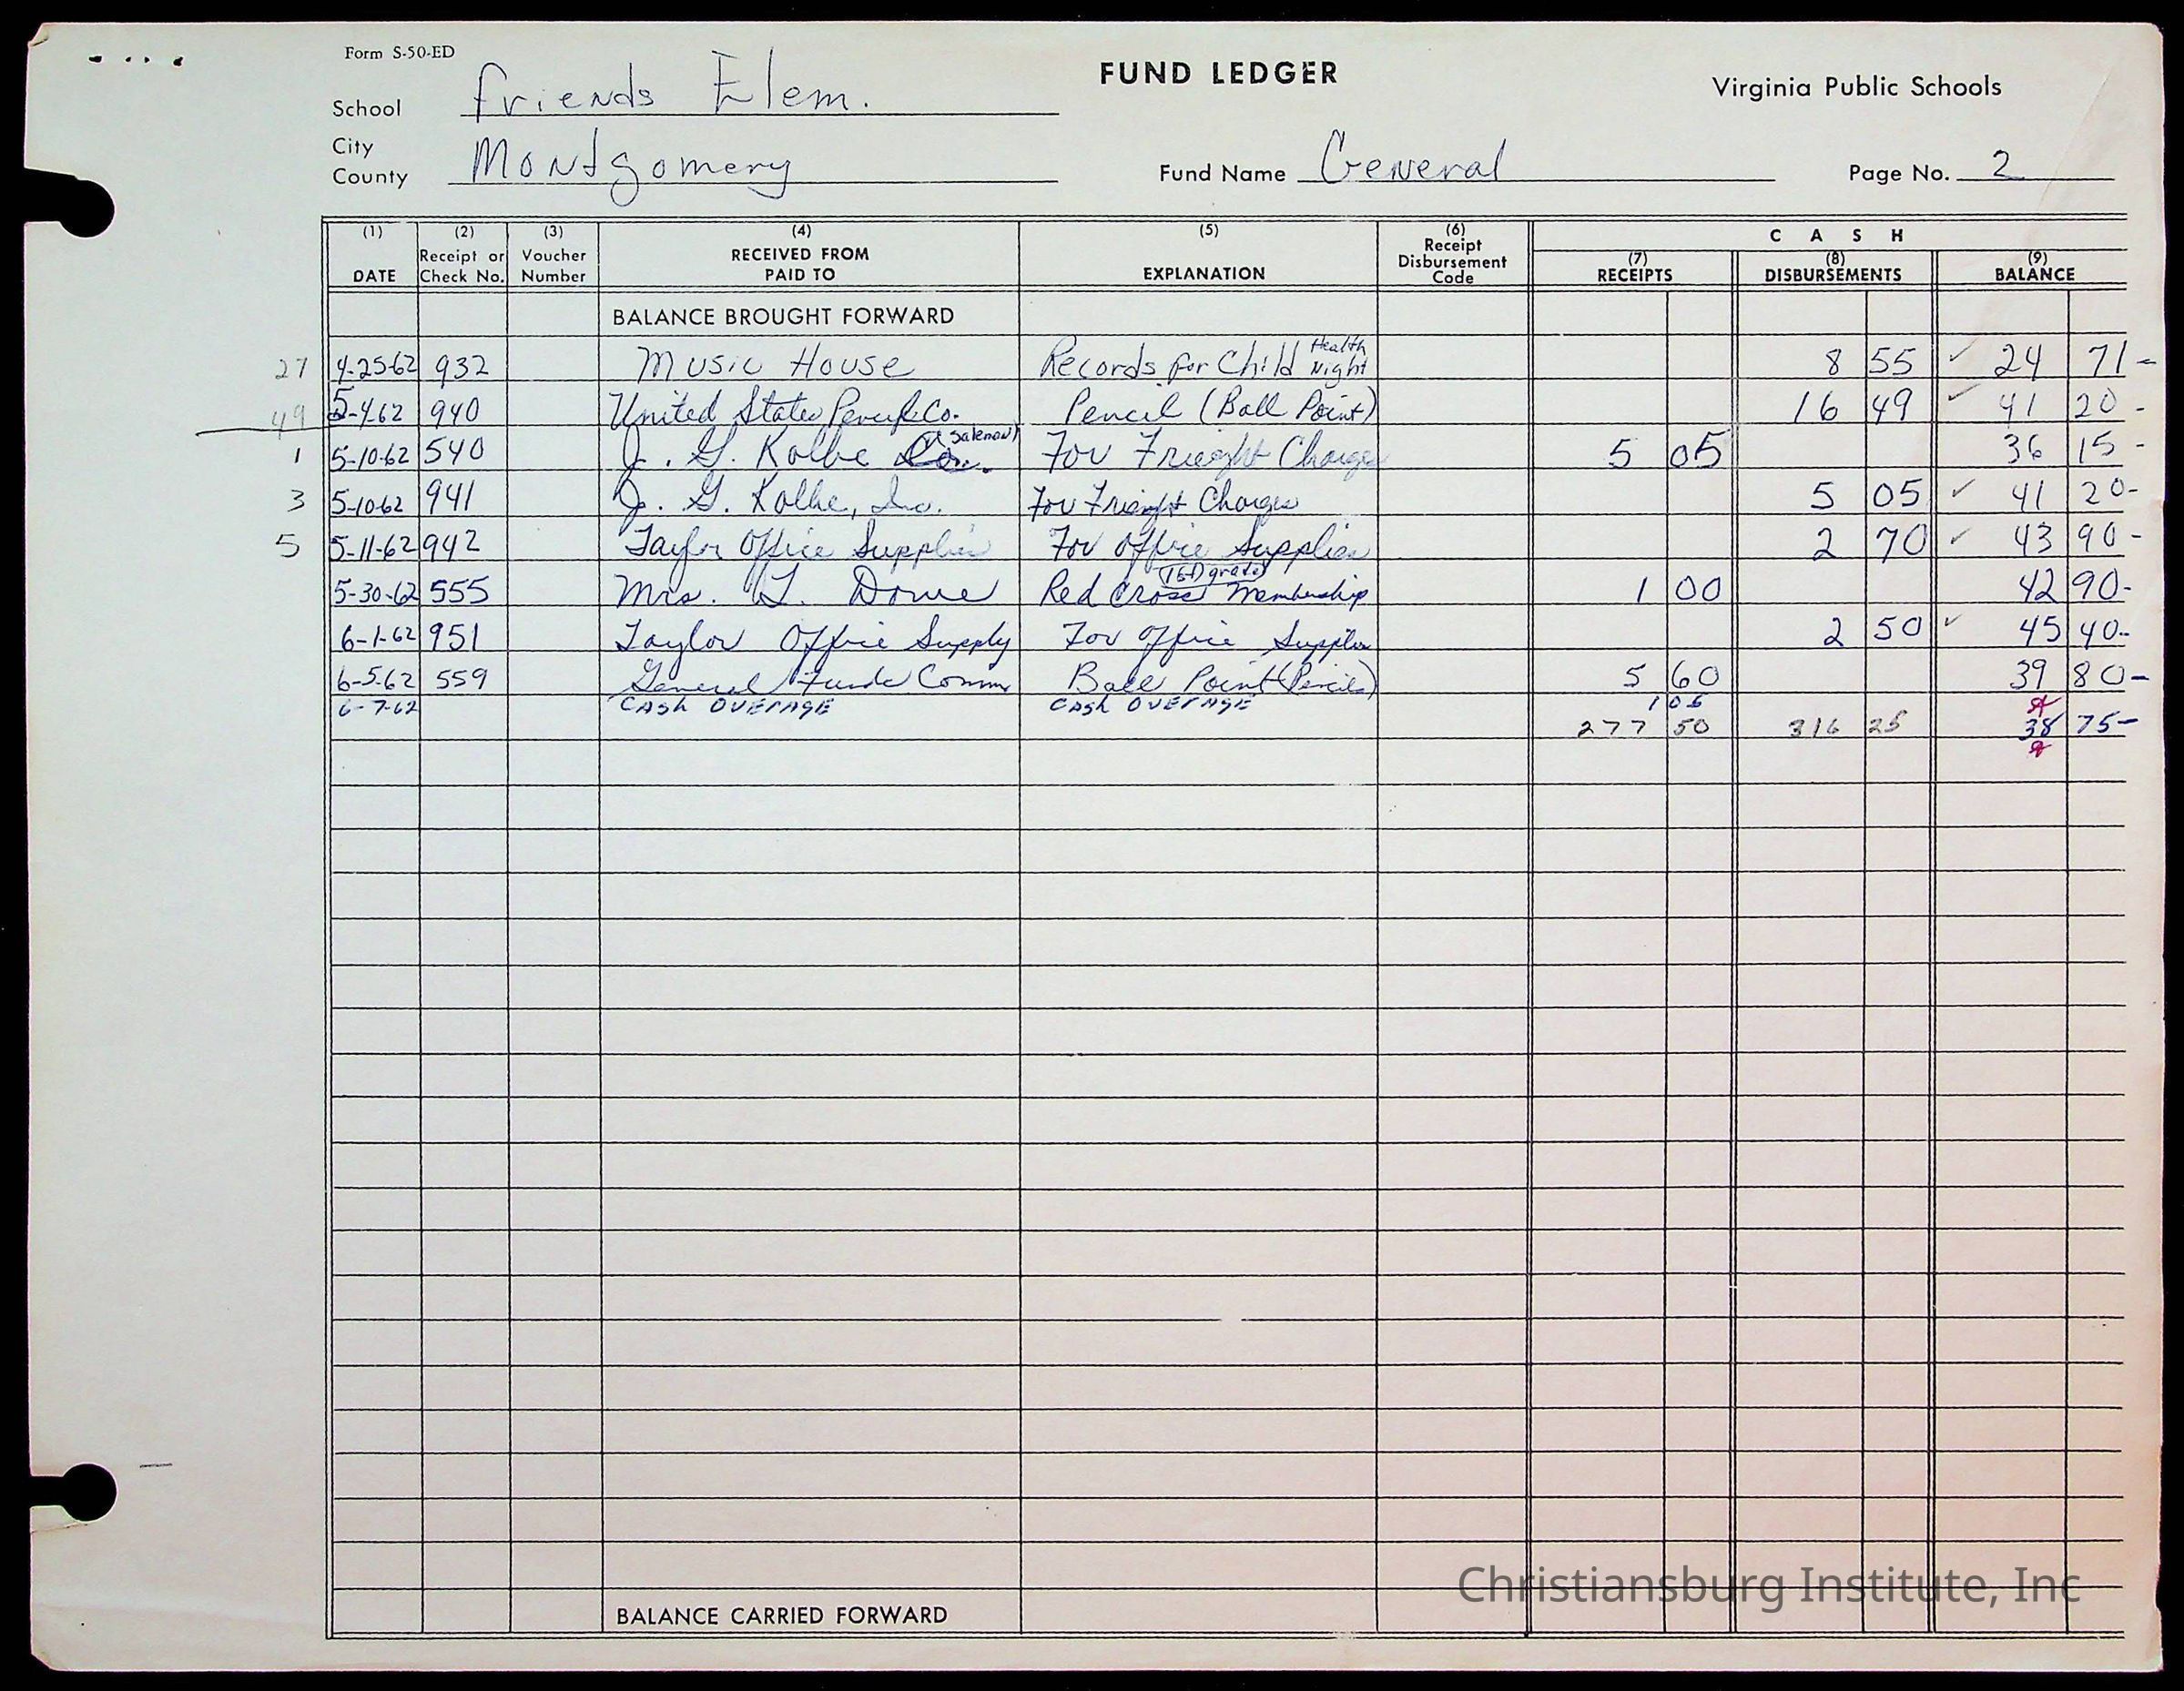 Form S-50-ED
FUND LEDGER
Virginia Public Schools
School Friends Elem.
City
County Montgomery
Fund Name General
Page No. 2
(1) DATE (2) Receipt or Check No. (3) Voucher Number (4) RECEIVED FROM PAID TO (5) EXPLANATION (6) Receipt Disbursement Code CASH (7) RECEIPTS (8) DISBURSEMENTS (9) BALANCE
BALANCE BROUGHT FORWARD
27 4-25-62 932 Music House Records for Child Health Night 8 55 ✓ 24 71-
49 5-4-62 940 United States Pencil Co. Pencil (Ball Point) 16 49 ✓ 41 20-
1 5-10-62 540 J. G. Kolbe For Frieght Charges 5 05 36 15-
3 5-10-62 941 J. G. Kolbe, Inc. For Frieght Charges 5 05 ✓ 41 20-
5 5-11-62 942 Taylor Office Supplies For Office Supplies 2 70 ✓ 43 90-
5-30-62 555 Mrs. L. Red Cross (1st grade) Membership 1 00 42 90-
6-1-62 951 Taylor Office Supply For Office Supplies 2 50 ✓ 45 40-
6-5-62 559 General Funds Comm Ball Point (Pencils) 5 60 39 80-
6-7-62 CASH OVERAGE CASH OVERAGE 1 05
277 50 316 25 38 75-
BALANCE CARRIED FORWARD
Christiansburg Institute, Inc